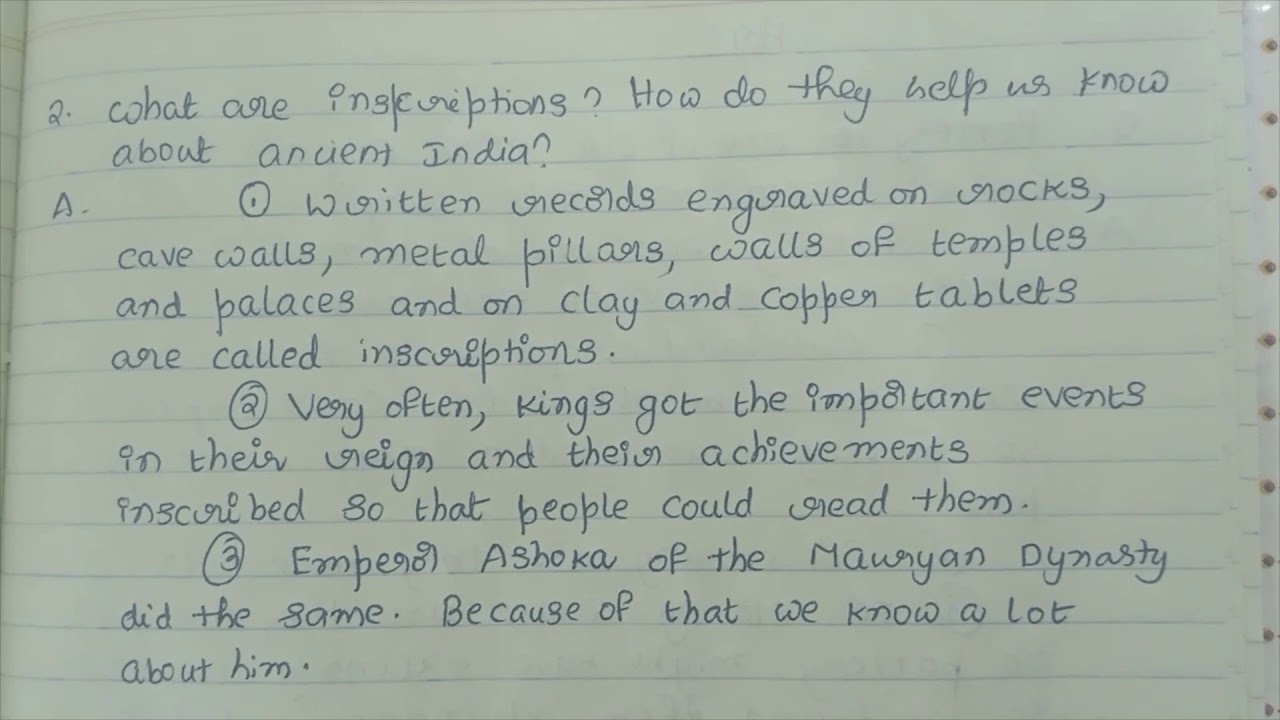 2. What are inscriptions? How do they help us know
about ancient India?
A. ① Written records engraved on rocks,
cave walls, metal pillars, walls of temples
and palaces and on clay and copper tablets
are called inscriptions.
② Very often, kings got the important events
in their reign and their achievements
inscribed so that people could read them.
③ Emperor Ashoka of the Mauryan Dynasty
did the same. Because of that we know a lot
about him.